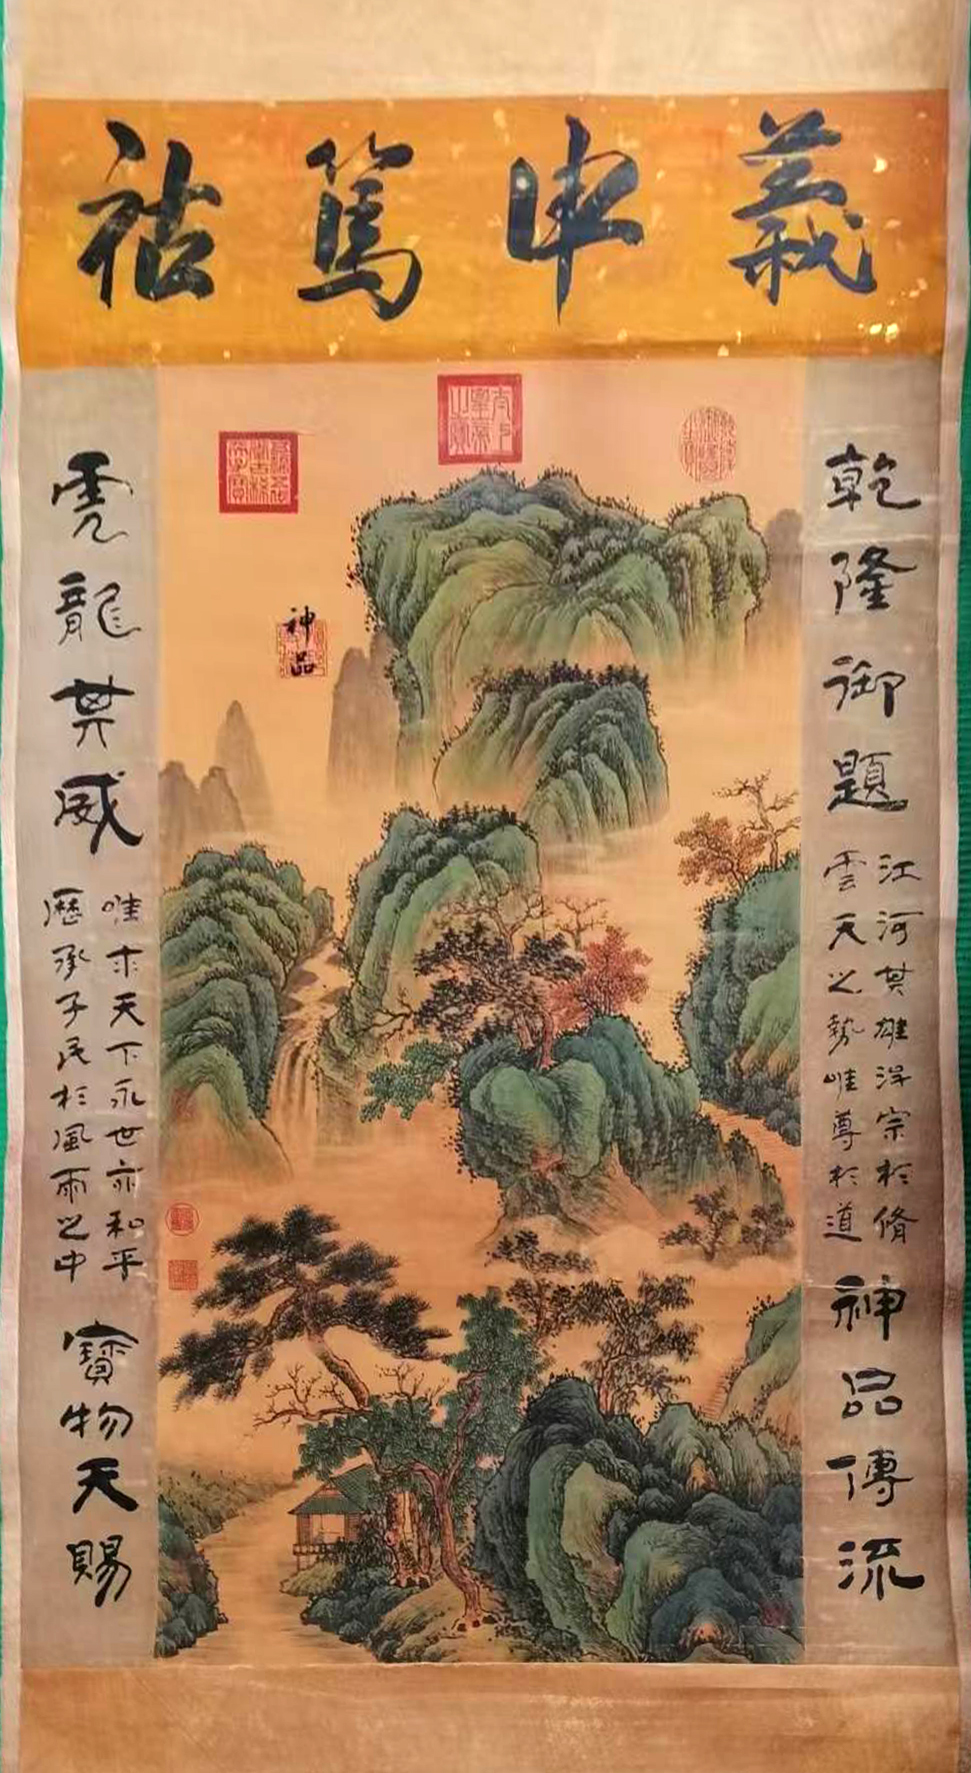 義申篤祜
乾隆御題
江河其雄浑宗於脩
雲天之勢唯尊於道
神品傳流
神品
虎龍其威
唯求天下永世亦和平
歷承子民於風雨之中
寶物天賜